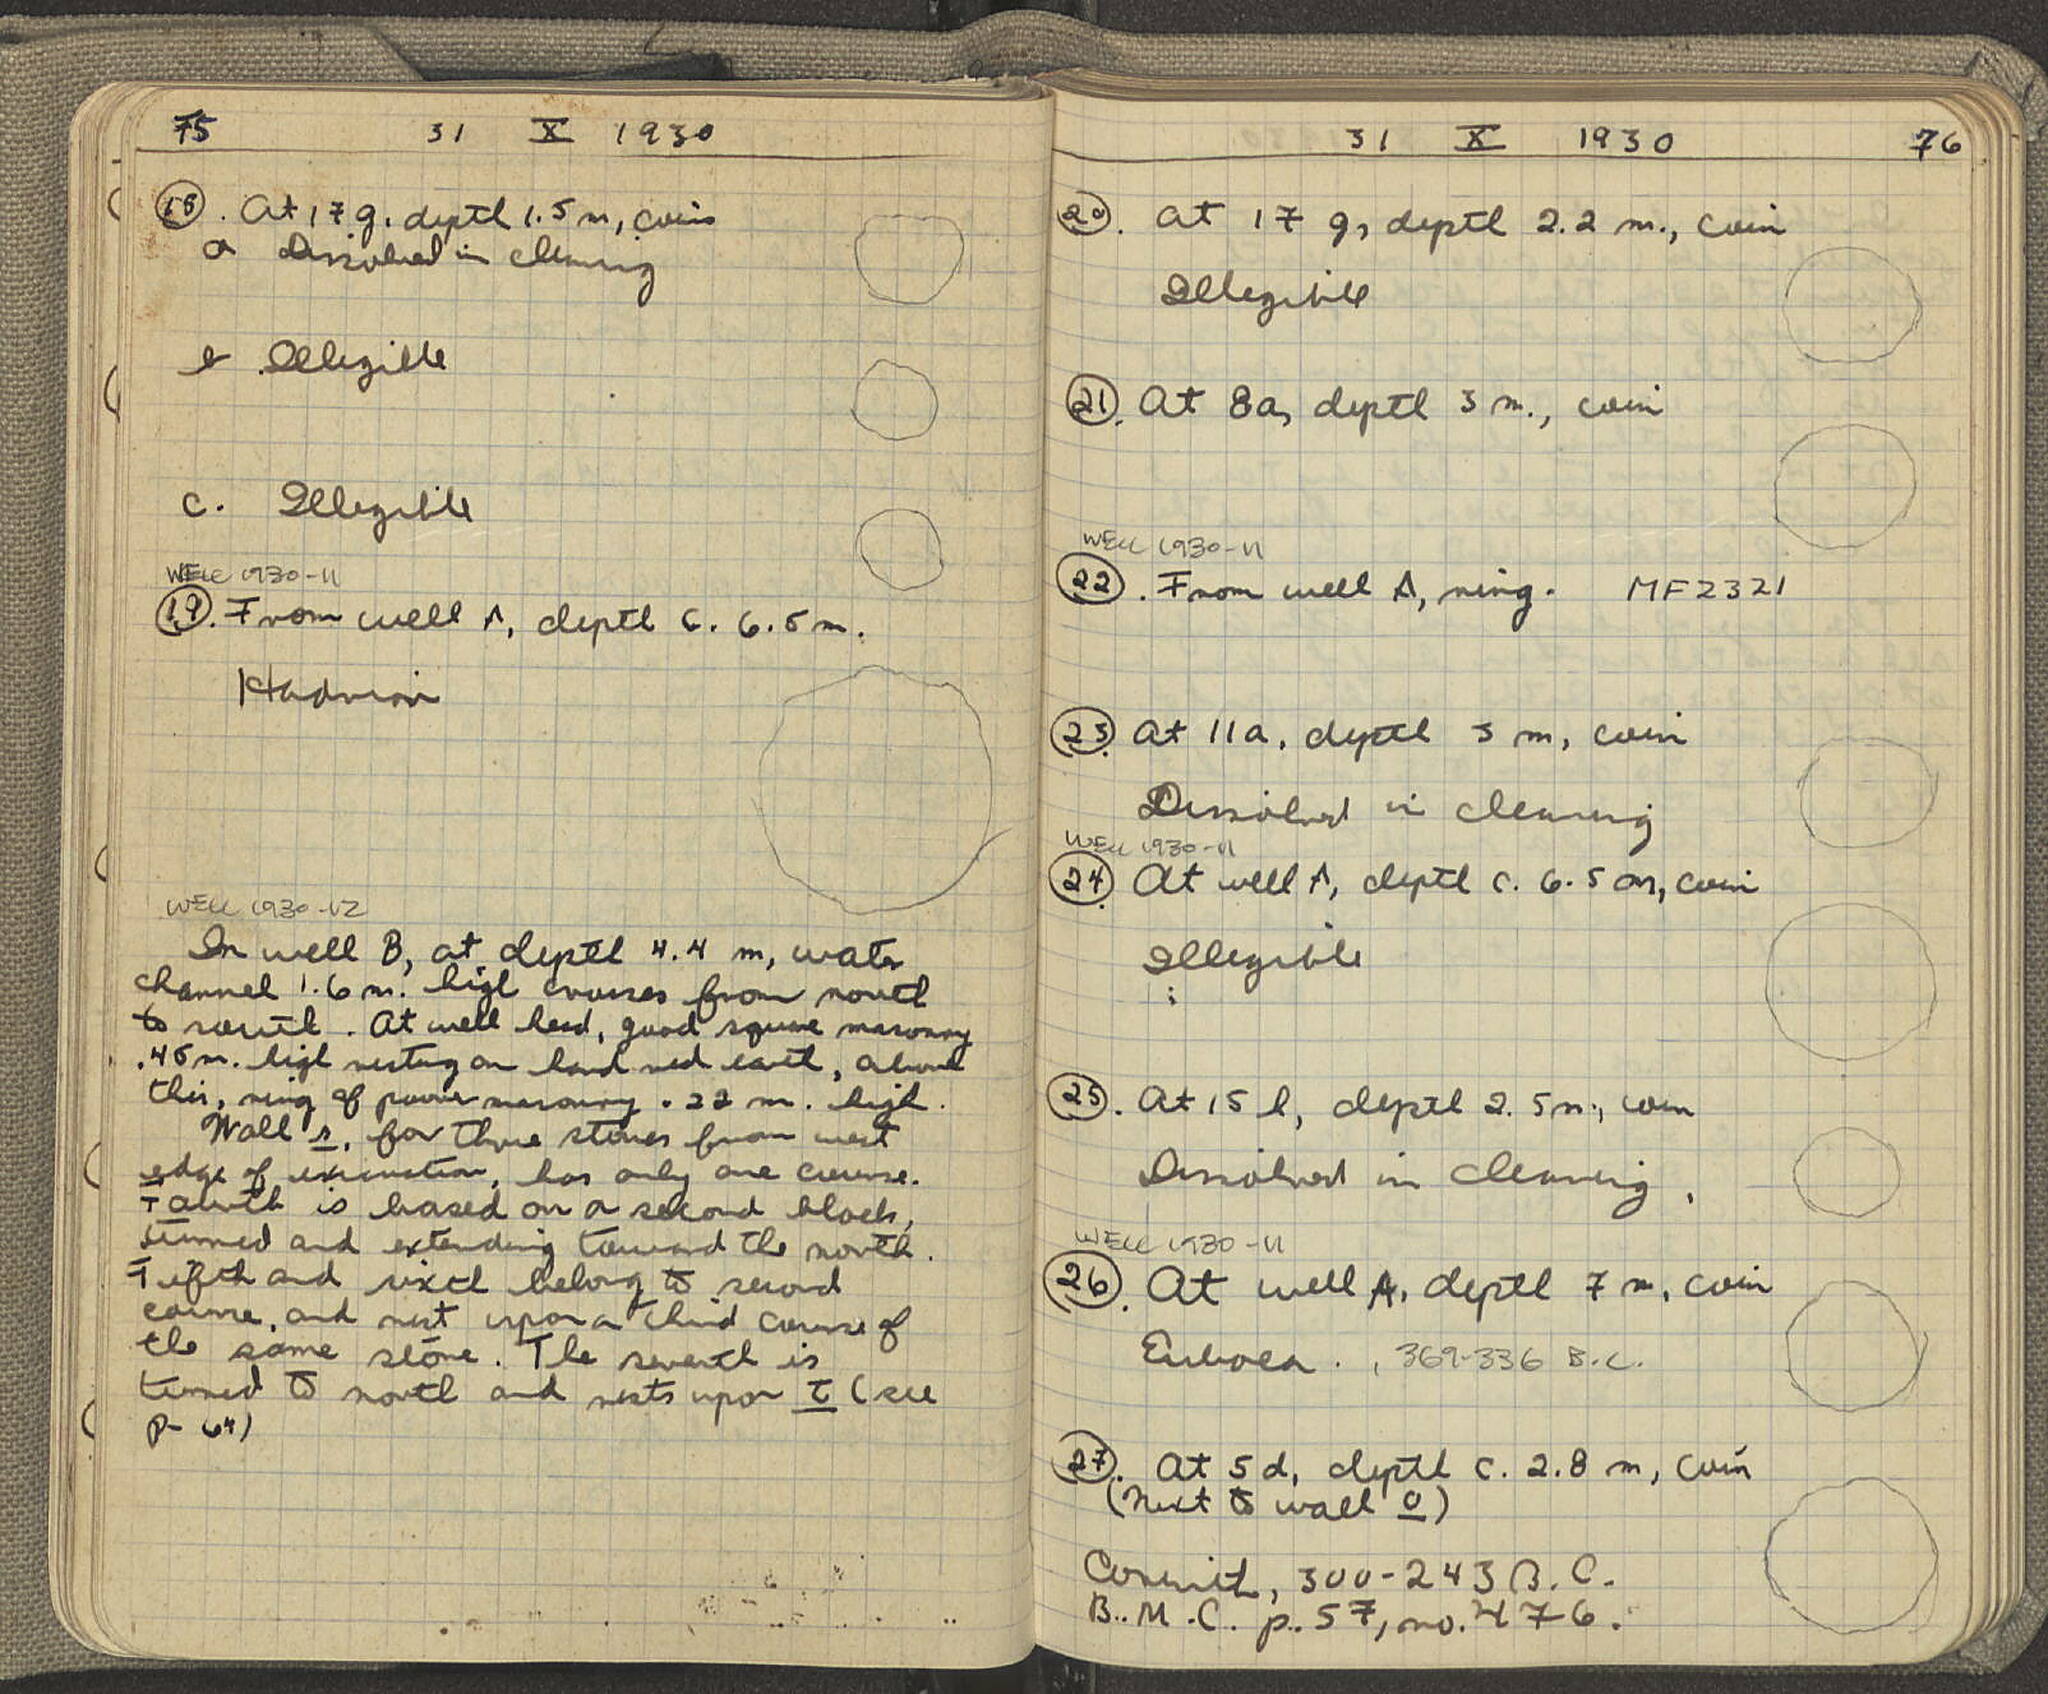 75 31 X 1930
18. At 17 g, depth 1.5 m, coins
a Dissolved in cleaning
b Illegible
c. Illegible
WELL 1930-11
19. From well A, depth c. 6.5 m.
Hadrian
WELL 1930-12
In well B, at depth 4.4 m, water
channel 1.6 m. high crosses from north
to south. At well head, good square masonry
.45 m. high resting on hard red earth, above
this, ring of poorer masonry .22 m. high.
Wall s, for three stones from west
edge of excavation, has only one course.
Fourth is based on a second block,
turned and extending toward the north.
Fifth and sixth belong to second
course, and rest upon a third course of
the same stone. The seventh is
turned to north and rests upon t (see
p. 64)
31 X 1930 76
20. At 17 g, depth 2.2 m., coin
Illegible
21. At 8a, depth 3 m., coin
WELL 1930-11
22. From well A, ring. MF2321
23. At 11a, depth 3 m, coin
Dissolved in cleaning
WELL 1930-11
24. At well A, depth c. 6.5 m, coin
Illegible
25. At 15 h, depth 2.5 m., coin
Dissolved in cleaning.
WELL 1930-11
26. At well A, depth 7 m, coin
Euboea., 369-336 B.C.
27. At 5d, depth c. 2.8 m, coin
(Next to wall o)
Corinth, 300-243 B.C.
B.M.C. p. 57, no. 476.